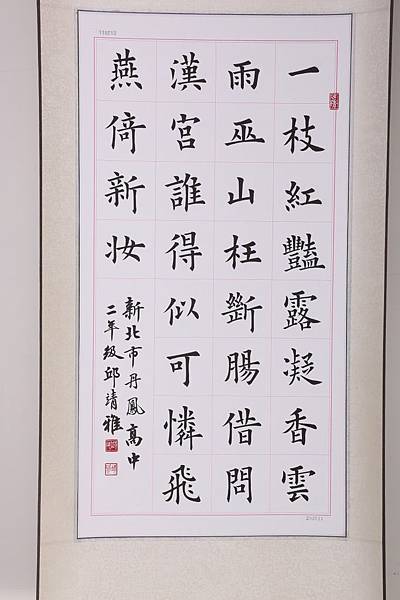 一枝紅豔露凝香雲
雨巫山枉斷腸借問
漢宮誰得似可憐飛
燕倚新妆
新北市丹鳳高中
二年級邱靖雅